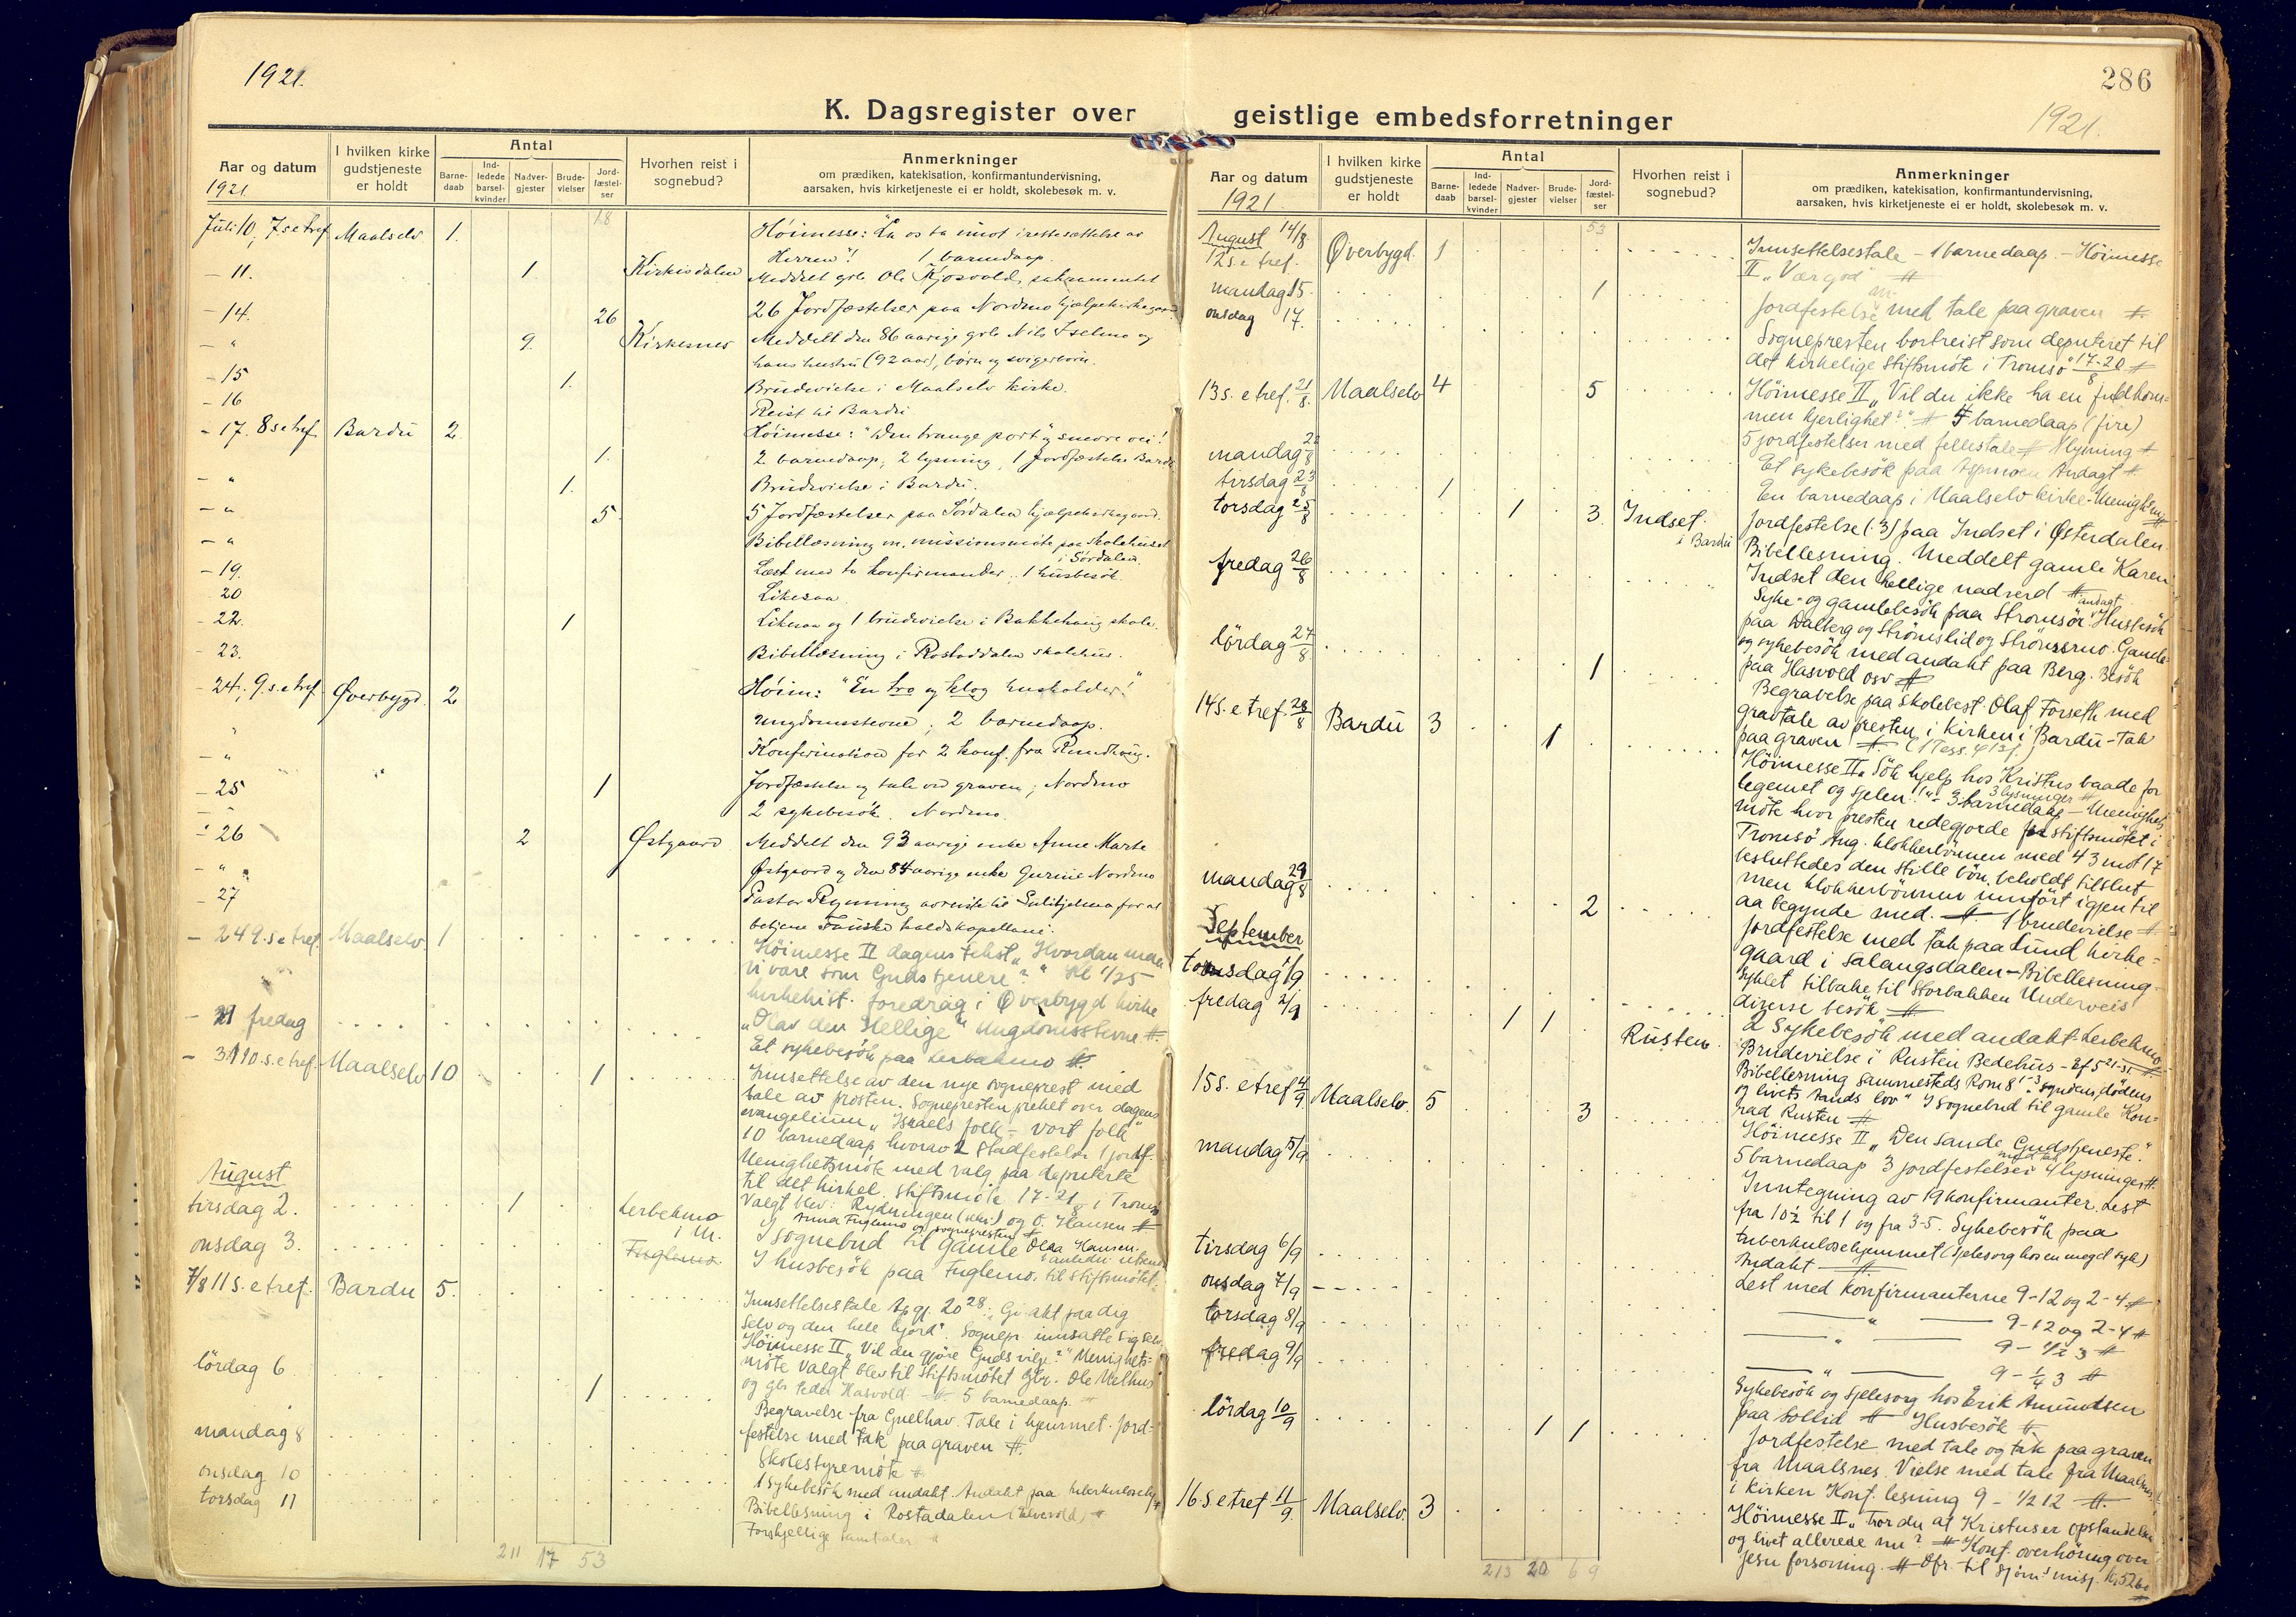 1921.
K. Dagsregister over
Aar og datum
1921.
I hvilken kirke
gudstjeneste
er holdt
Antal
Barne-
daab
Ind-
ledede
barsel-
kvinder
Nadver-
gjester
Brude-
vielser
Jord-
fæstel-
ser
Hvorhen reist i
sognebud?
Anmerkninger
om prædiken, katekisation, konfirmantundervisning,
aarsaken, hvis kirketjeneste ei er holdt, skolebesøk m. v.
18
Juli 10, 7. s e tref Maalselv 1. Höimesse: "La os ta imot irettesættelse av
Herren"! 1 barnedaap.
- 11. 1. Kirkisdalen Meddelt grb. Ole Kjosvold, sakramentet
- 14. 26 26 Jordfæstelser paa Nordmo hjælpekirkegaard
- " 9. Kirkesnes Meddelt den 86 aarige grb. Nils Iselmo og
hans hustru (92 aar), børn og svigerbørn.
- 15 1. Brudevielse i Maalselv kirke.
- 16 Reist til Bardu
- 17. 8 s e tref Bardu 2. Höimesse: "Den trange port" og smevre vei!
1. 2 barnedaap, 2 lysning, 1 Jordfæstelse Bardu
- " 1. Brudevielse i Bardu.
- " 5 5 Jordfæstelser paa Sördalen hjælpekirkegaard.
- " Bibellæsning m. missionsmöte paa Skolehuset
i Sördalen.
- 19. Læst med to konfirmander, 1 husbesök.
20 Likesaa
- 22. 1 Likesaa og 1 brudevielse i Bakkehaug skole.
- 23. Bibellæsning i Rostaddalen skolehus.
- 24, 9. s. e tref Øverbygd 2 Höim: "En tro og klog husholder!"
ungdomsstevne; 2 barnedaap.
- " Konfirmation for 2 konf. fra Rundhaug.
- 25 1 Jordfæstelse og tale ved graven; Nordmo
2 sykebesök. Nordmo.
- 26 2 Østgaard Meddelt den 93 aarige enke Anne Marte
- " Østgaard og den 84 aarige enke Gurine Nordmo
- 27 Pastor Rynning avreiste til Sulitjelma for at
betjene Fauske kaldskapellani.
- 24 9. s e tref. Maalselv. 1 Höimesse II dagens tekst "Hvordan maa
vi være som Guds tjenere?" Kl 1/2 5
kirkehist. foredrag i Øverbygd kirke
"Olav den Hellige" Ungdomsstevne #.
- 29 fredag Et sykebesök paa Lerbekmo #.
- 31 10. s. e tref. Maalselv 10 1 Innsettelse av den nye sogneprest med
tale av prosten. Sognepresten prekte over dagens
evangelium "Israels folk - vort folk"
10 barnedaap hvorav 2 stadfestelse 1 jordf.
Menighetsmöte med valg paa deputerte
til det kirkel. stiftsmöte 17-21/8 i Tromsö
Valgt blev: Rydningen (skri.) og O. Hansen #
August
tirsdag 2. 1 Lerbekmo
i M. I sognebud til gamle Olea Hansen.
onsdag 3. Fuglemo I husbesök paa Fuglemo.
7/8 11 s. e tref. Bardu 5. Innsettelsestale Ap gj. 20 28. "Gi akt paa dig
selv og den hele hjord". Sognepr. innsatte sig selv.
Höimesse II "Vil du gjöre Guds vilje?" Menighets-
möte Valgt blev til stiftsmötet gbr. Ole Melhus
og gbr Peder Hasvold # 5 barnedaap.
lördag 6 1 Begravelse fra Gnelhav. Tale i hjemmet. Jord-
festelse med tak paa graven #.
mandag 8 Skolestyremöte #
onsdag 10 1 sykebesök med andakt. Andakt paa tuberkulosehj.
torsdag 11 Bibellesning i Rostadalen #
Forskjellige samtaler
211 17 53
286
1921.
geistlige embedsforretninger
Aar og datum
1921
I hvilken kirke
gudstjeneste
er holdt
Antal
Barne-
daab
Ind-
ledede
barsel-
kvinder
Nadver-
gjester
Brude-
vielser
Jord-
fæstel-
ser
Hvorhen reist i
sognebud?
Anmerkninger
om prædiken, katekisation, konfirmantundervisning,
aarsaken, hvis kirketjeneste ei er holdt, skolebesøk m. v.
53
August 14/8
12 s e tref. Øverbygd. 1 Innsettelsestale - 1 barnedaap. - Höimesse
II "Vær god" #
mandag 15. 1 Jordfestelse med tale paa graven #
onsdag 17. Sognepresten bortreist som deputeret til
det kirkelige stiftsmöte i Tromsö 17-20/8 #
13 s. e tref. 21/8. Maalselv 4 5 Höimesse II "Vil du ikke ha en fuldkom-
men kjerlighet?" # 4 barnedaap (fire)
5 jordfestelser med fellestale # 1 lysning #
mandag 22/8 Et sykebesök paa Aspmoen Andagt #
tirsdag 23/8 1 En barnedaap i Maalselv kirke - Menighetsm
torsdag 25/8 1 3. Indset
i Bardu Jordfestelse (:3) paa Indset i Østerdalen
Bibellesning. Meddelt gamle Karen
Indset den hellige nadverd #
fredag 26/8 Syke- og gamlebesök paa Strömsör. andagt Husbesök
paa Dalberg og Strömslid og Strömsmo. Gamle-
og sykebesök med andakt paa Berg. Besök
paa Hasvold osv #
lördag 27/8. 1 Begravelse paa skolebest. Olaf Forseth med
gravtale av presten i kirken i Bardu - Tak
paa graven #. (1 Tess. 4 12 f.)
14 s. e tref. 28/8 Bardu 3 1 Höimesse II "Sök hjelp hos Kristus baade for
legemet og sjelen!" - 3 barnedaap 3 lysninger # - Menighets
möte hvor presten redegjorde for stiftsmötet i
Tromsö Ang. klokkerbönnen med 43 mot 17
besluttedes den stille bön beholdt tilslut
men klokkerbönnen innfört igjen til
aa begynde med. # 1 brudevielse #
mandag 29/8 2 Jordfestelse med tak paa Lund kirke-
gaard i Salangsdalen - Bibellesning -
Syklet tilbake til Storbakken Underveis
diverse besök #
September
torsdag 1/9 2 Sykebesök med andakt. Lerbekmo
fredag 2/9 1 1 Rusten. Brudevielse i Rusten Bedehus - Ef 5 21-31 #
Bibellesning sammesteds Rom 8 1-3 "syndens, dödens
og livets Aands lov" I sognebud til gamle Kon-
rad Rusten #
15 s. e tref 4/9 Maalselv. 5 3 Höimesse II "Den sande Gudstjeneste."
5 barnedaap 3 jordfestelser med tak 4 lysninger #.
mandag 5/9 Inntegning av 19 konfirmanter. Lest
fra 10 1/2 til 1 og fra 3-5. Sykebesök paa
tuberkulosehjemmet (sjelesorg hos en meget syk)
Andakt #
tirsdag 6/9 Lest med konfirmanterne 9-12 og 2-4 #
onsdag 7/9 " 9-12 og 2-4 #
torsdag 8/9 " 9 - 1/2 3 #
fredag 9/9 " 9 - 1/4 3 #
Sykebesök og sjelesorg hos Erik Amundsen
paa Sollid # Husbesök #.
lördag 10/9 1 1 Jordfestelse med tale og tak paa graven
fra Maalsnes. Vielse med tale fra Maalsnes
i kirken Konf. lesning 9 - 1/2 12 #.
16 s e tref 11/9. Maalselv. 3 Höimesse II "Tror du at Kristus er opstandelsen
og livet allerede nu? # Konf. overhöring over
Jesu forsoning. # Ofr. til sjöm.s misj.
213 20 69